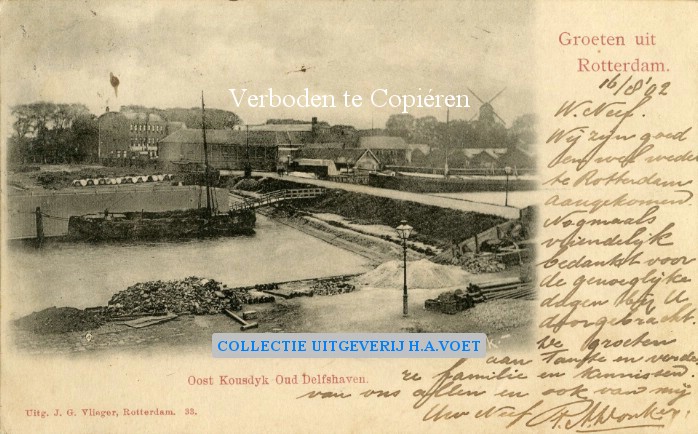 Groeten uit
Rotterdam.
16/8'02
W. Neef.
Wij zijn goed
en wel weder
te Rotterdam
aangekomen
Nogmaals
vriendelijk
bedankt voor
de genoegelijke
dagen bij U
doorgebracht.
De groeten
aan Tante en verdere
familie en kennissen.
van ons allen en ook van mij
Uw Neef
Verboden te Copiéren
COLLECTIE UITGEVERIJ H.A.VOET
Oost Kousdyk Oud Delfshaven.
Uitg. J. G. Vlieger, Rotterdam. 33.